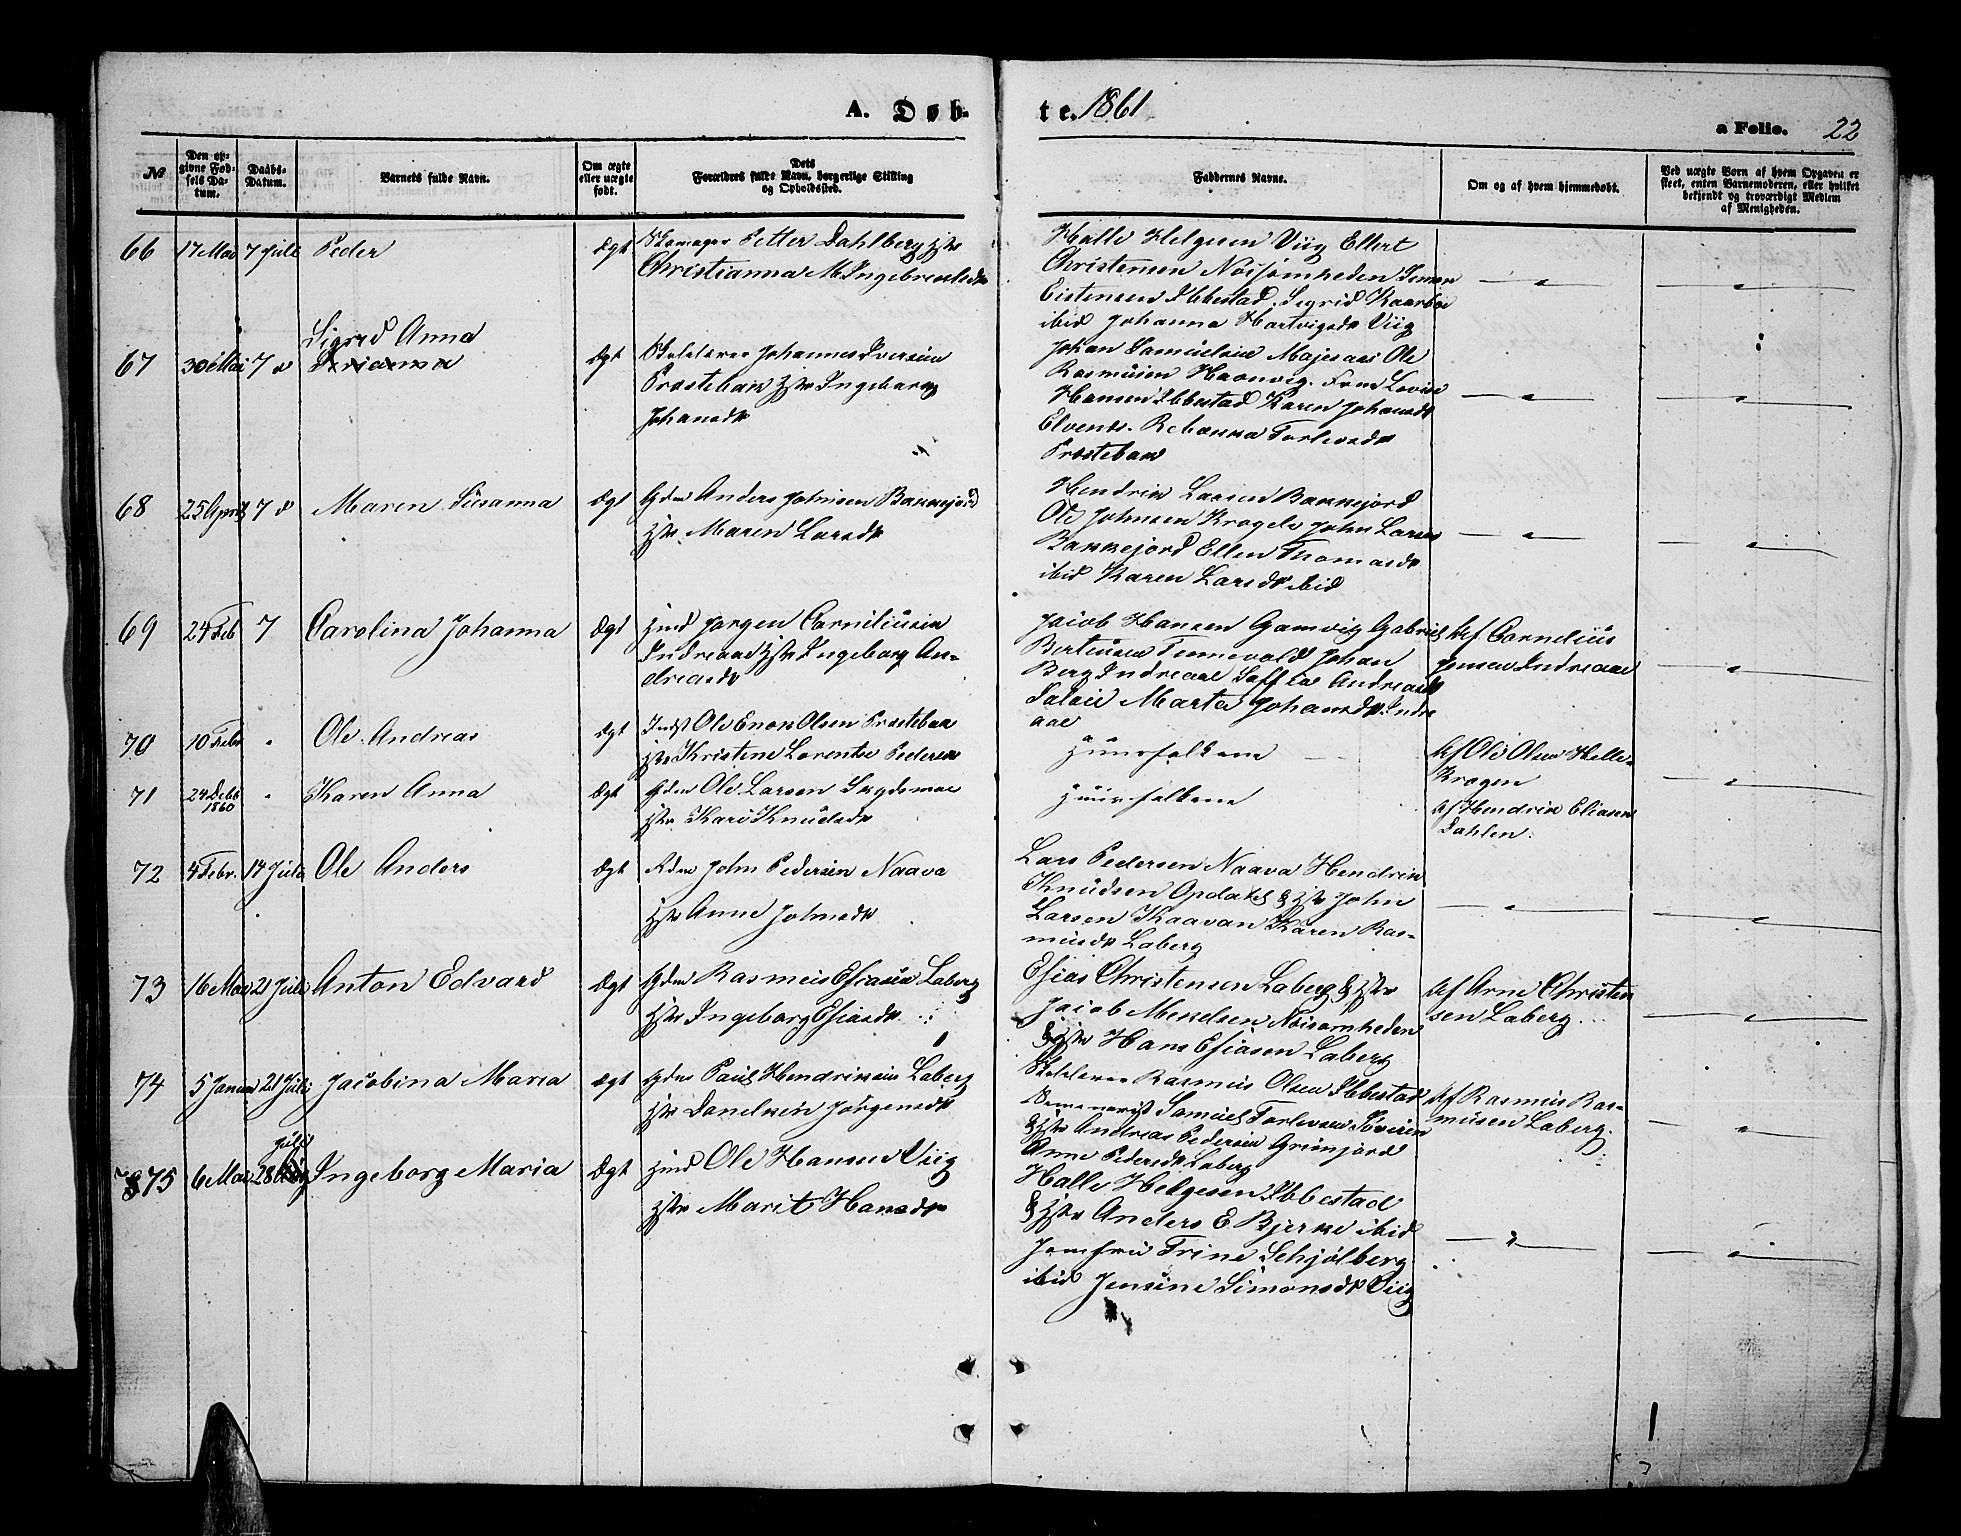 A. Døb-
te. 1861
a Folio. 22
№
Den op-
givne Fød-
sels Da-
tum.
Daabs-
Datum.
Barnets fulde Navn.
Om ægte
eller uægte
født.
Dets
Forældres fulde Navn, borgerlige Stilling
og Opholdssted.
Faddernes Navne.
Om og af hvem hjemmedøbt.
Ved uægte Børn af hvem Opgaven er
skeet, enten Barnemoderen, eller hvilket
bekjendt og troværdigt Medlem
af Menigheden.
66 17 Mai 7 Juli Peder Ægt Skomager Petter Dahlberg Hstr
Christianna M. Ingebrectsdtr
Halle Helgesen Viig Ellert
Christensen Nøisomheden
Ibbestad. Sigrid Kaarbøe
ibid Johanna Hartvigsdtr Viig
67 30 Mai 7 d Sigrid Anna Ægt Skolelærer Johannes Iversen
Præstebak Hstr Ingeborg
Johansdtr
Johan Samuelsen Majesaas Ole
Rasmusen Havnvig. Frue Lovise
Hansen Ibbestad Karen Johansdtr
Elvenes. Rebekka Torlevsdtr
Præstebak
68 25 April 7 d Maren Susanna Ægt Gdm Anders Johnsen Bakkejord
Hstr Maren Larsdtr
Hendrik Larsen Bakkejord
Ole Johnsen Kragele John Larsen
Bakkejord Ellen Thomasdtr
ibid Karen Larsdtr ibid
69 24 Feb 7 Carolina Johanna Ægt Hmd Jørgen Corneliusen
Indreaae Hstr Ingeborg An-
dreasdtr
Jacob Hansen Gamvig Gabriel
Berteusen Tennevold Johan
Berg Indreaae Andreasdtr
Marta Johansdtr Indre
aae
Af Cornelius
Jensen Indreaae
70 10 Febr " Ole Andreas Ægt Indst Ole Enok Olsen Præstebak
Hstr Kristine Lorentse Pedersen
Huusfolkene
Af Ole Olsen Helle-
Krogen
71 24 Debr
1860 " Karen Anna Ægt Gdm Ole Larsen
Hstr Kari Knudsdtr
Huusfolkene
Af Hendrik Eliasen
Dahlen.
72 4 Febr. 14 Juli Ole Anders Ægt Rdm John Pedersen Naava
Hstr Anne Johnsdtr
Lars Pedersen Naava Hendrik
Knudsen Opdahl & Hstr John
Larsen Kaavan Karen Ras-
musdtr Laberg
73 16 Mai 21 Juli Anton Edvard Ægt Gdm Rasmus Esiasen Laberg
Hstr Ingeborg Esiasdtr
Esias Christensen Laberg & Hstr
Jacob Mekelsen Nøisomheden
& Hstr Hans Esiasen Laberg
Af Arne Christen
sen Laberg.
74 5 Januar 21 Juli Jacobina Maria Ægt Gdm Paul Hendriksen Laberg
Hstr Danelsen Jørgensdtr
Skolelærer Rasmus Olsen Ibbestad
Seminarist Samuel Torlevsen
& Hstr Andreas Pedersen Grønjord
Anne Pedersdtr Laberg
Af Rasmus Ras-
musen Laberg.
75 6 Mai 28 Juli Ingeborg Maria Ægt Hmd Ole Hansen Viig
Hstr Marit Hansdtr
Halle Helgesen Ibbestad
& Hstr Anders E. Bjerke ibid
Jomfru Trine Schjølberg
ibid Jensine Simonsdtr Viig